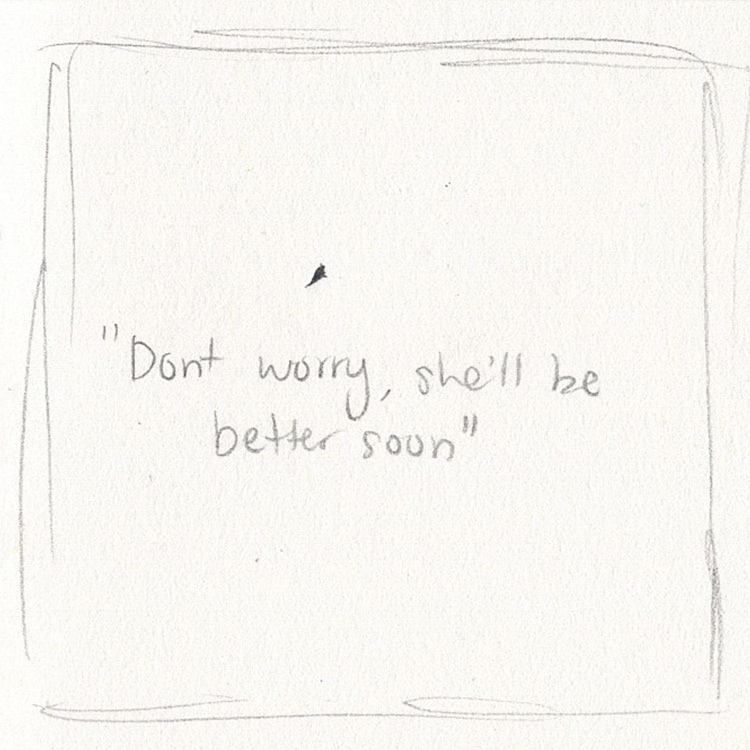 "Dont worry, she'll be
better soon"